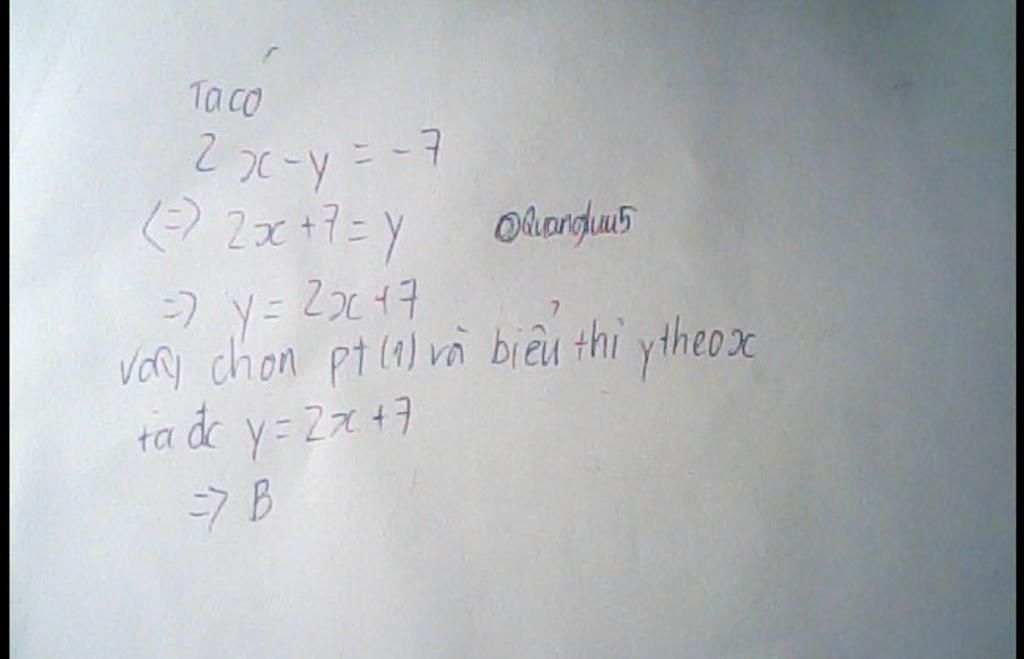 Ta có
2x-y = -7
<=> 2x+7=y
@Quangluu5
=> y = 2x+7
Vậy chọn pt (1) và biểu thị y theo x
ta đc y=2x+7
=> B